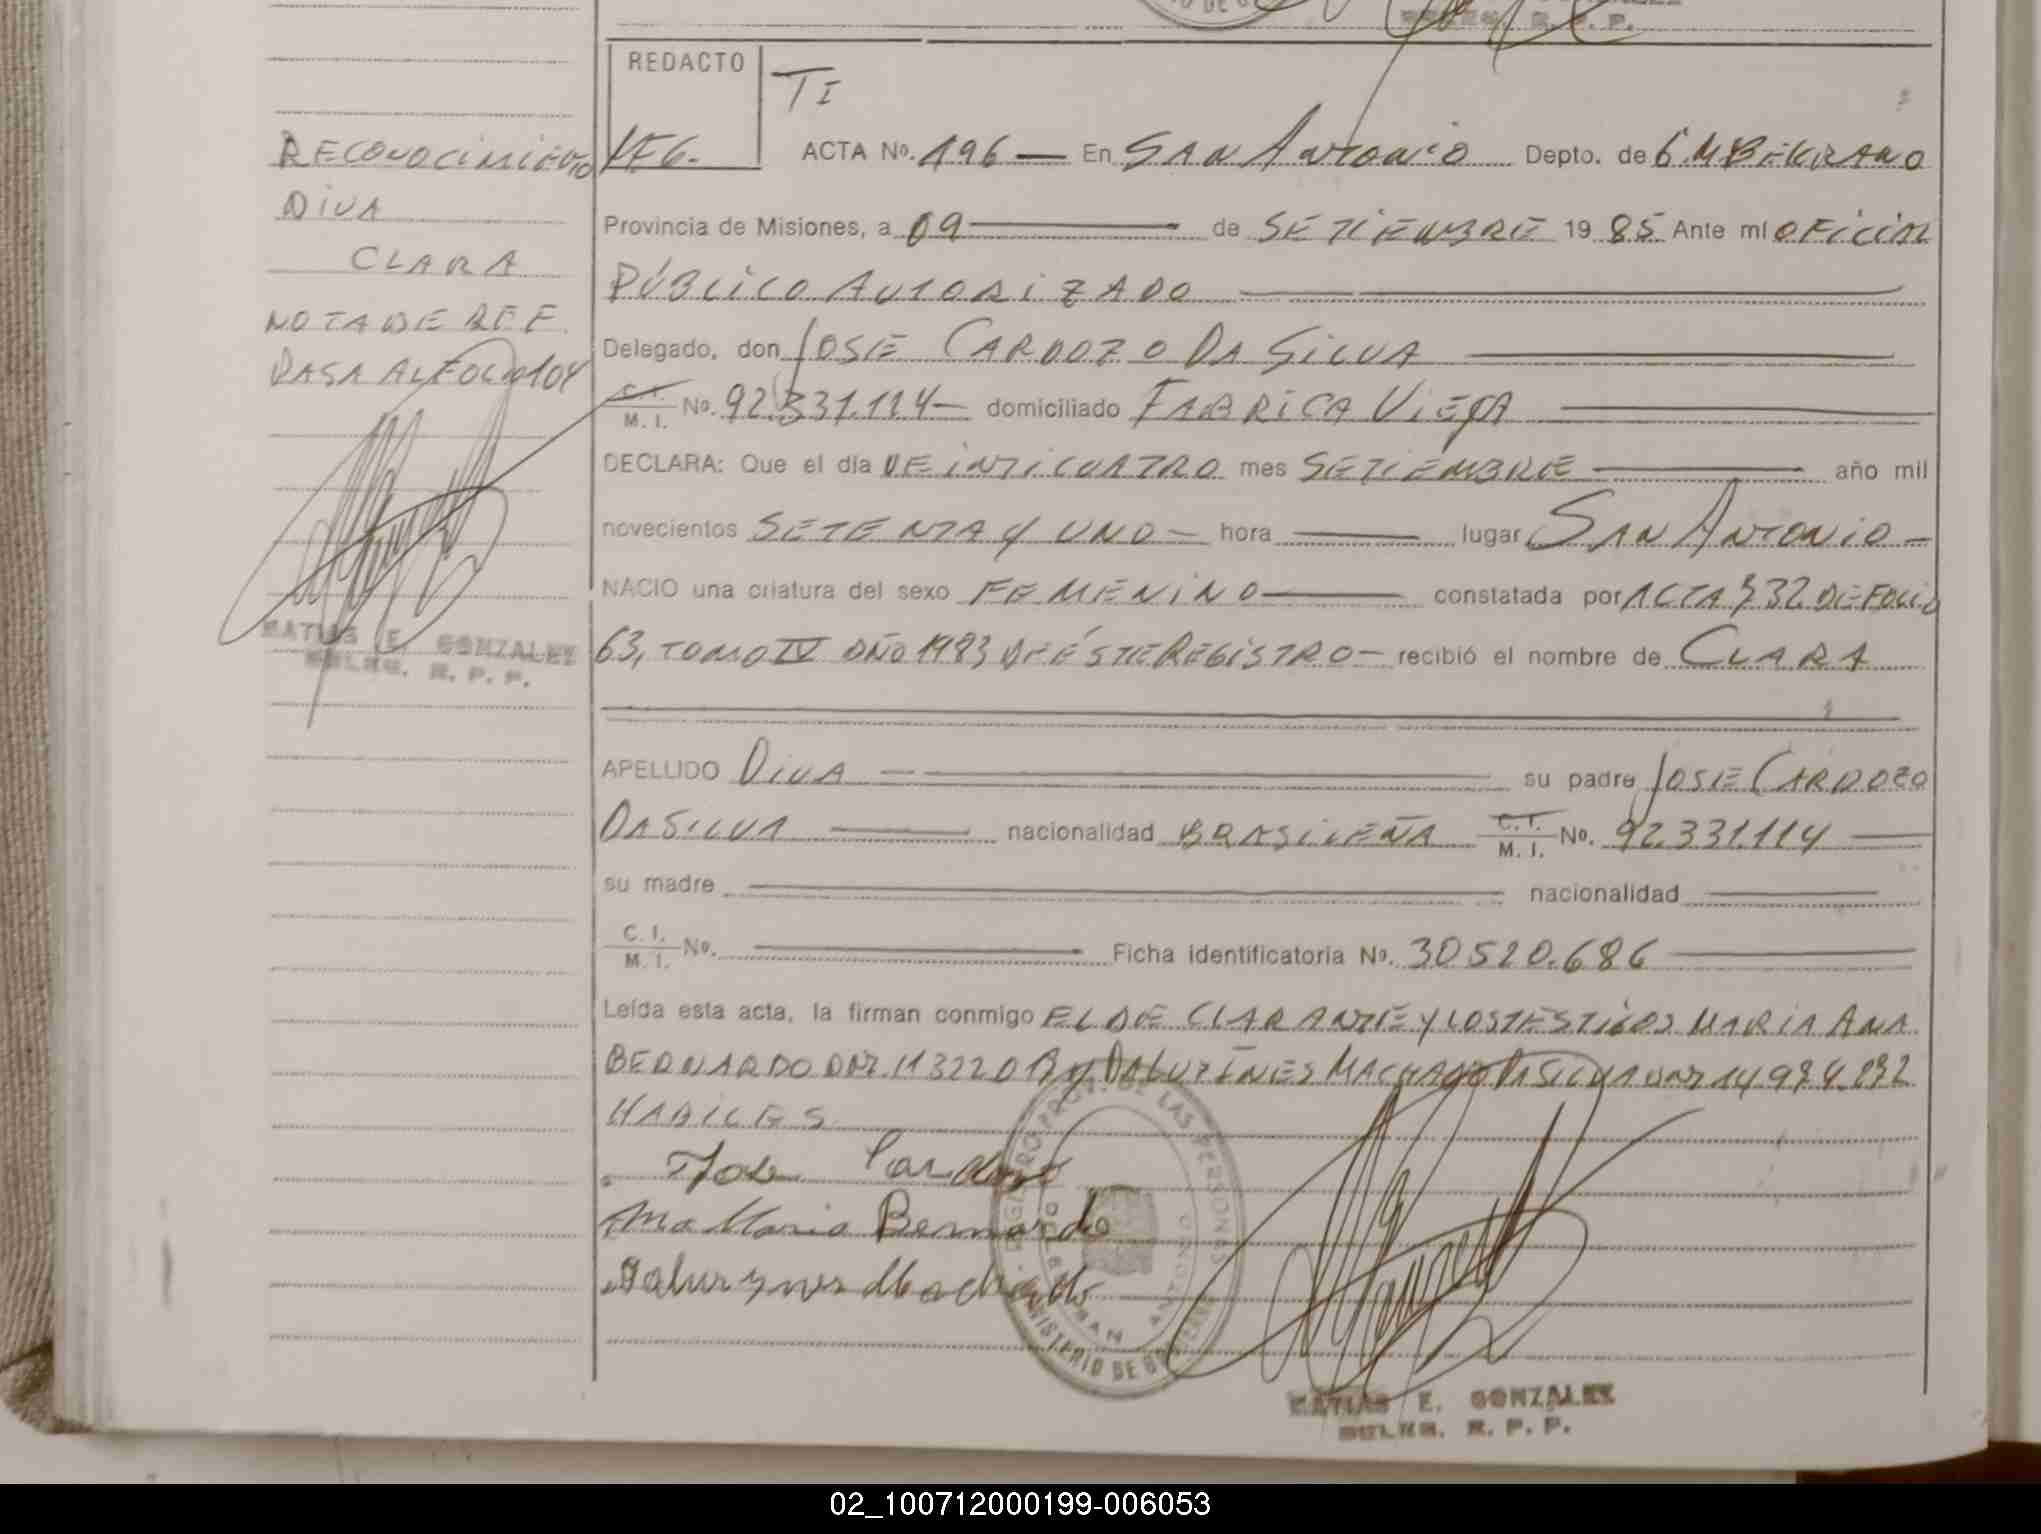 REDACTO
TI
RECONOCIMIENTO
DIVA
CLARA
NOTA DE REF.
PASA AL FOLIO 104
MATIAS E. GONZALEZ
R. P. P.
ACTA No. 196 — En SAN ANTONIO Depto. de
Provincia de Misiones, a 09 — de SETIEMBRE 1985 Ante mi OFICIAL
PÚBLICO AUTORIZADO —
Delegado, don JOSE CARDOZO DA SILVA —
C. I. M. I. No. 92.331.114 — domiciliado FABRICA VIEJA —
DECLARA: Que el día VEINTICUATRO mes SETIEMBRE — año mil
novecientos SETENTA Y UNO — hora — lugar SAN ANTONIO —
NACIO una criatura del sexo FEMENINO — constatada por ACTA 332 DE FOLIO
63, TOMO IV AÑO 1983 DE ÉSTE REGISTRO — recibió el nombre de CLARA
APELLIDO DIVA — su padre JOSE CARDOZO
DA SILVA — nacionalidad BRASILEÑA C. I. M. I. No. 92.331.114 —
su madre — nacionalidad —
C. I. M. I. No. — Ficha identificatoria No. 30520.686 —
Leída esta acta, la firman conmigo EL DECLARANTE Y LOS TESTIGOS MARIA ANA
BERNARDO DNI. Y DALURINES MACHADO DA SILVA DNI 14984.892
HABILES
Jose Cardozo
Ana Maria Bernardo
Machado
REGISTRO PROV. DE LAS PERSONAS
SAN ANTONIO
MINISTERIO DE GOBIERNO
MATIAS E. GONZALEZ
R. P. P.
02_100712000199-006053